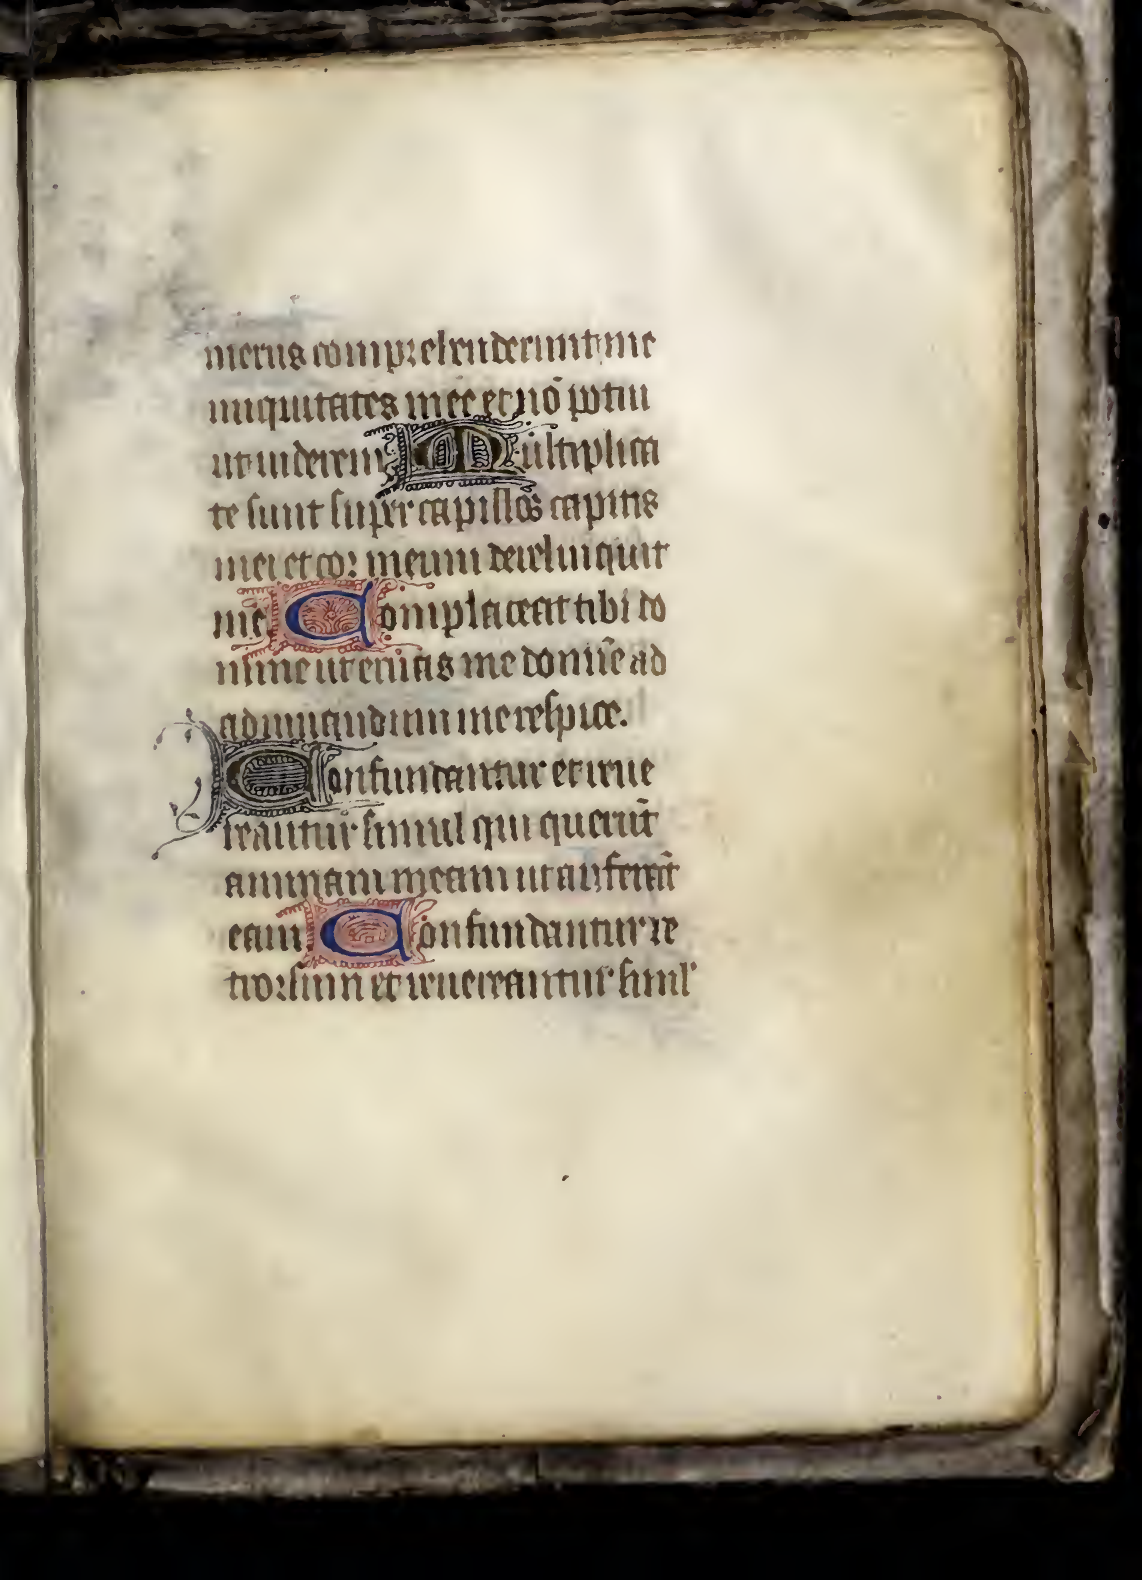 merus comprehenderunt me
iniquitates mee et nō potui
ut viderem Multiplica
te sunt super capillos capitis
mei et cor meum dereliquit
me Complaceat tibi do
mine ut eruas me domīe ad
adiuuandum me respice.
Confundantur et reue
reantur simul qui querūt
animam meam ut auferāt
eam Confundantur re
trorsum et reuereantur simul